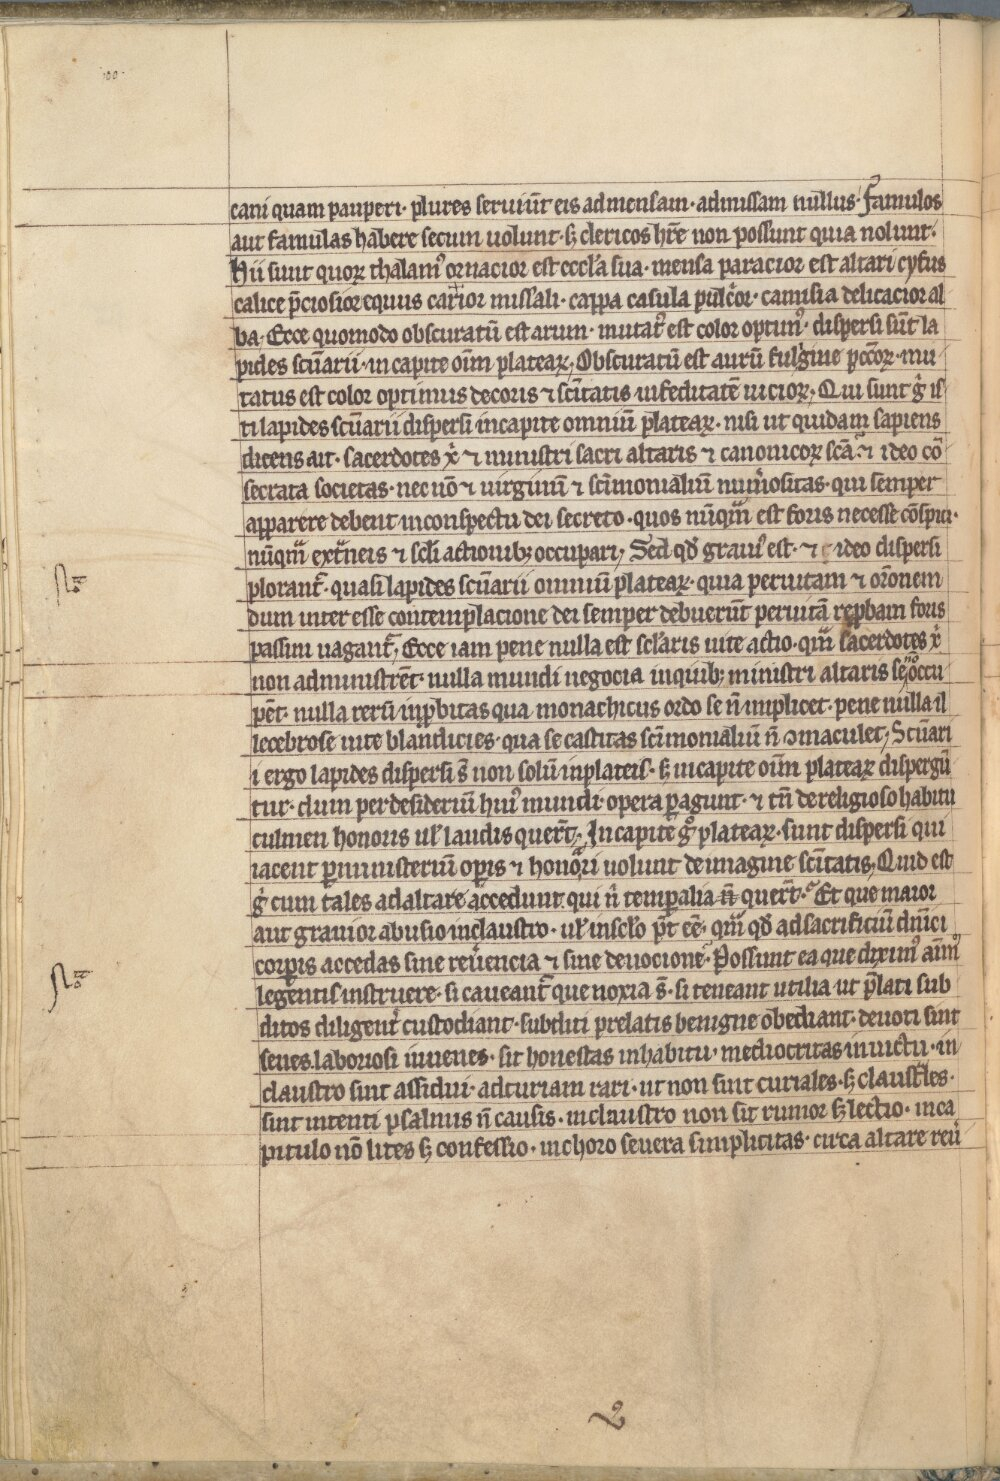 cani quam pauperi· plures seruiu̅t eis ad mensam· ad missam nullus· Famulos
aut famulas habere secum uolunt· sꝫ clericos hr̅e non possunt quia nolunt·
Hii sunt quoꝝ thalamꝰ ornacior est eccl̅a sua· mensa paracior est altari cyfus
calice p̅ciosior equus carior missali· cappa casula pulc̉or· camisia delicacior al
ba· Ecce quomodo obscuratu̅ est arum· mutatꝰ est color optimꝰ· dispersi su̅t la
pides sc̅uarii· in capite oi̅m plateaꝝ· Obscuratu̅ est auru̅ fuligine pc̅coꝝ· mu
tatus est color optimus decoris ⁊ sc̅itatis in feditate̅ uicioꝝ· Qui sunt gͥ is
ti lapides sc̅uarii dispersi in capite omniu̅ plateaꝝ· nisi ut quidam sapiens
dicens ait· sacerdotes xͥ ⁊ ministri sacri altaris ⁊ canonicoꝝ sc̅a ⁊ ideo co̅
secrata societas· nec no̅ ⁊ uirginu̅ ⁊ sc̅imonialiu̅ num̉ositas· qui semper
apparere debent in conspectu dei secreto· quos nu̅qᷓm est foris necesse co̅spici·
nu̅qᷓm extᷓneis ⁊ sc̅li actionibꝫ occupari· Sed qd̅ grauiꝰ est· ⁊ ideo dispersi
plorant᷑· quasi lapides sc̅uarii omniu̅ plateaꝝ· quia per uitam ⁊ or̅onem
dum inter esse contemplacione dei semper debuerunt per uita̅ rep̱bam foris
passim uagant᷑· Ecce iam pene nulla est sc̅laris uite actio· qᷓm sacerdotes xͥ
non administre̅t· nulla mundi negocia in quibꝫ ministri altaris se no̅ occu
pe̅t· nulla reru̅ inp̱bitas qua monachicus ordo se n̅ implicet· pene nulla il
lecebrose uite blandicies· qua se castitas sc̅imonialiu̅ n̅ ꝯmaculet· Sc̅uari
i ergo lapides dispersi s̅ non solu̅ in plateis· sꝫ in capite oi̅m plateaꝝ dispergu̅
tur· dum per desideriu̅ huiꝰ mundi opera ꝑagunt· ⁊ tn̅ de religioso habitu
culmen honoris ul̅ laudis quer̅t· In capite gͦ plateaꝝ· sunt dispersi qui
iacent ꝑ ministeriu̅ oꝑis ⁊ honorari uolunt de imagine sc̅itatis· Quid est
gͥ cum tales ad altare accedunt qui n̅ temporalia n̅ quer̅t· Et que maior
aut grauior abusio in claustro· ul̅ in sc̅lo p̅t ee̅· qᷓm qd̅ ad sacrificiu̅ dn̅ici
corꝑis accedas sine reu̅encia ⁊ sine deuocione· Possunt ea que diximꝰ ai̅m
legentis instruere· si caueant᷑ que noxia s̅· si teneant utilia ut p̅lati sub
ditos diligent̉ custodiant· subditi prelatis benigne obediant· deuoti sint
senes· laboriosi iuuenes· sit honestas in habitu· mediocritas in uictu· in
claustro sint assidui· ad curiam rari· ut non sint curiales· sꝫ claustᷓles·
sint intenti psalmis n̅ causis· in claustro non sit rumor sꝫ lectio· in ca
pitulo no̅ lites sꝫ confessio· in choro seuera simplicitas· circa altare reu̅